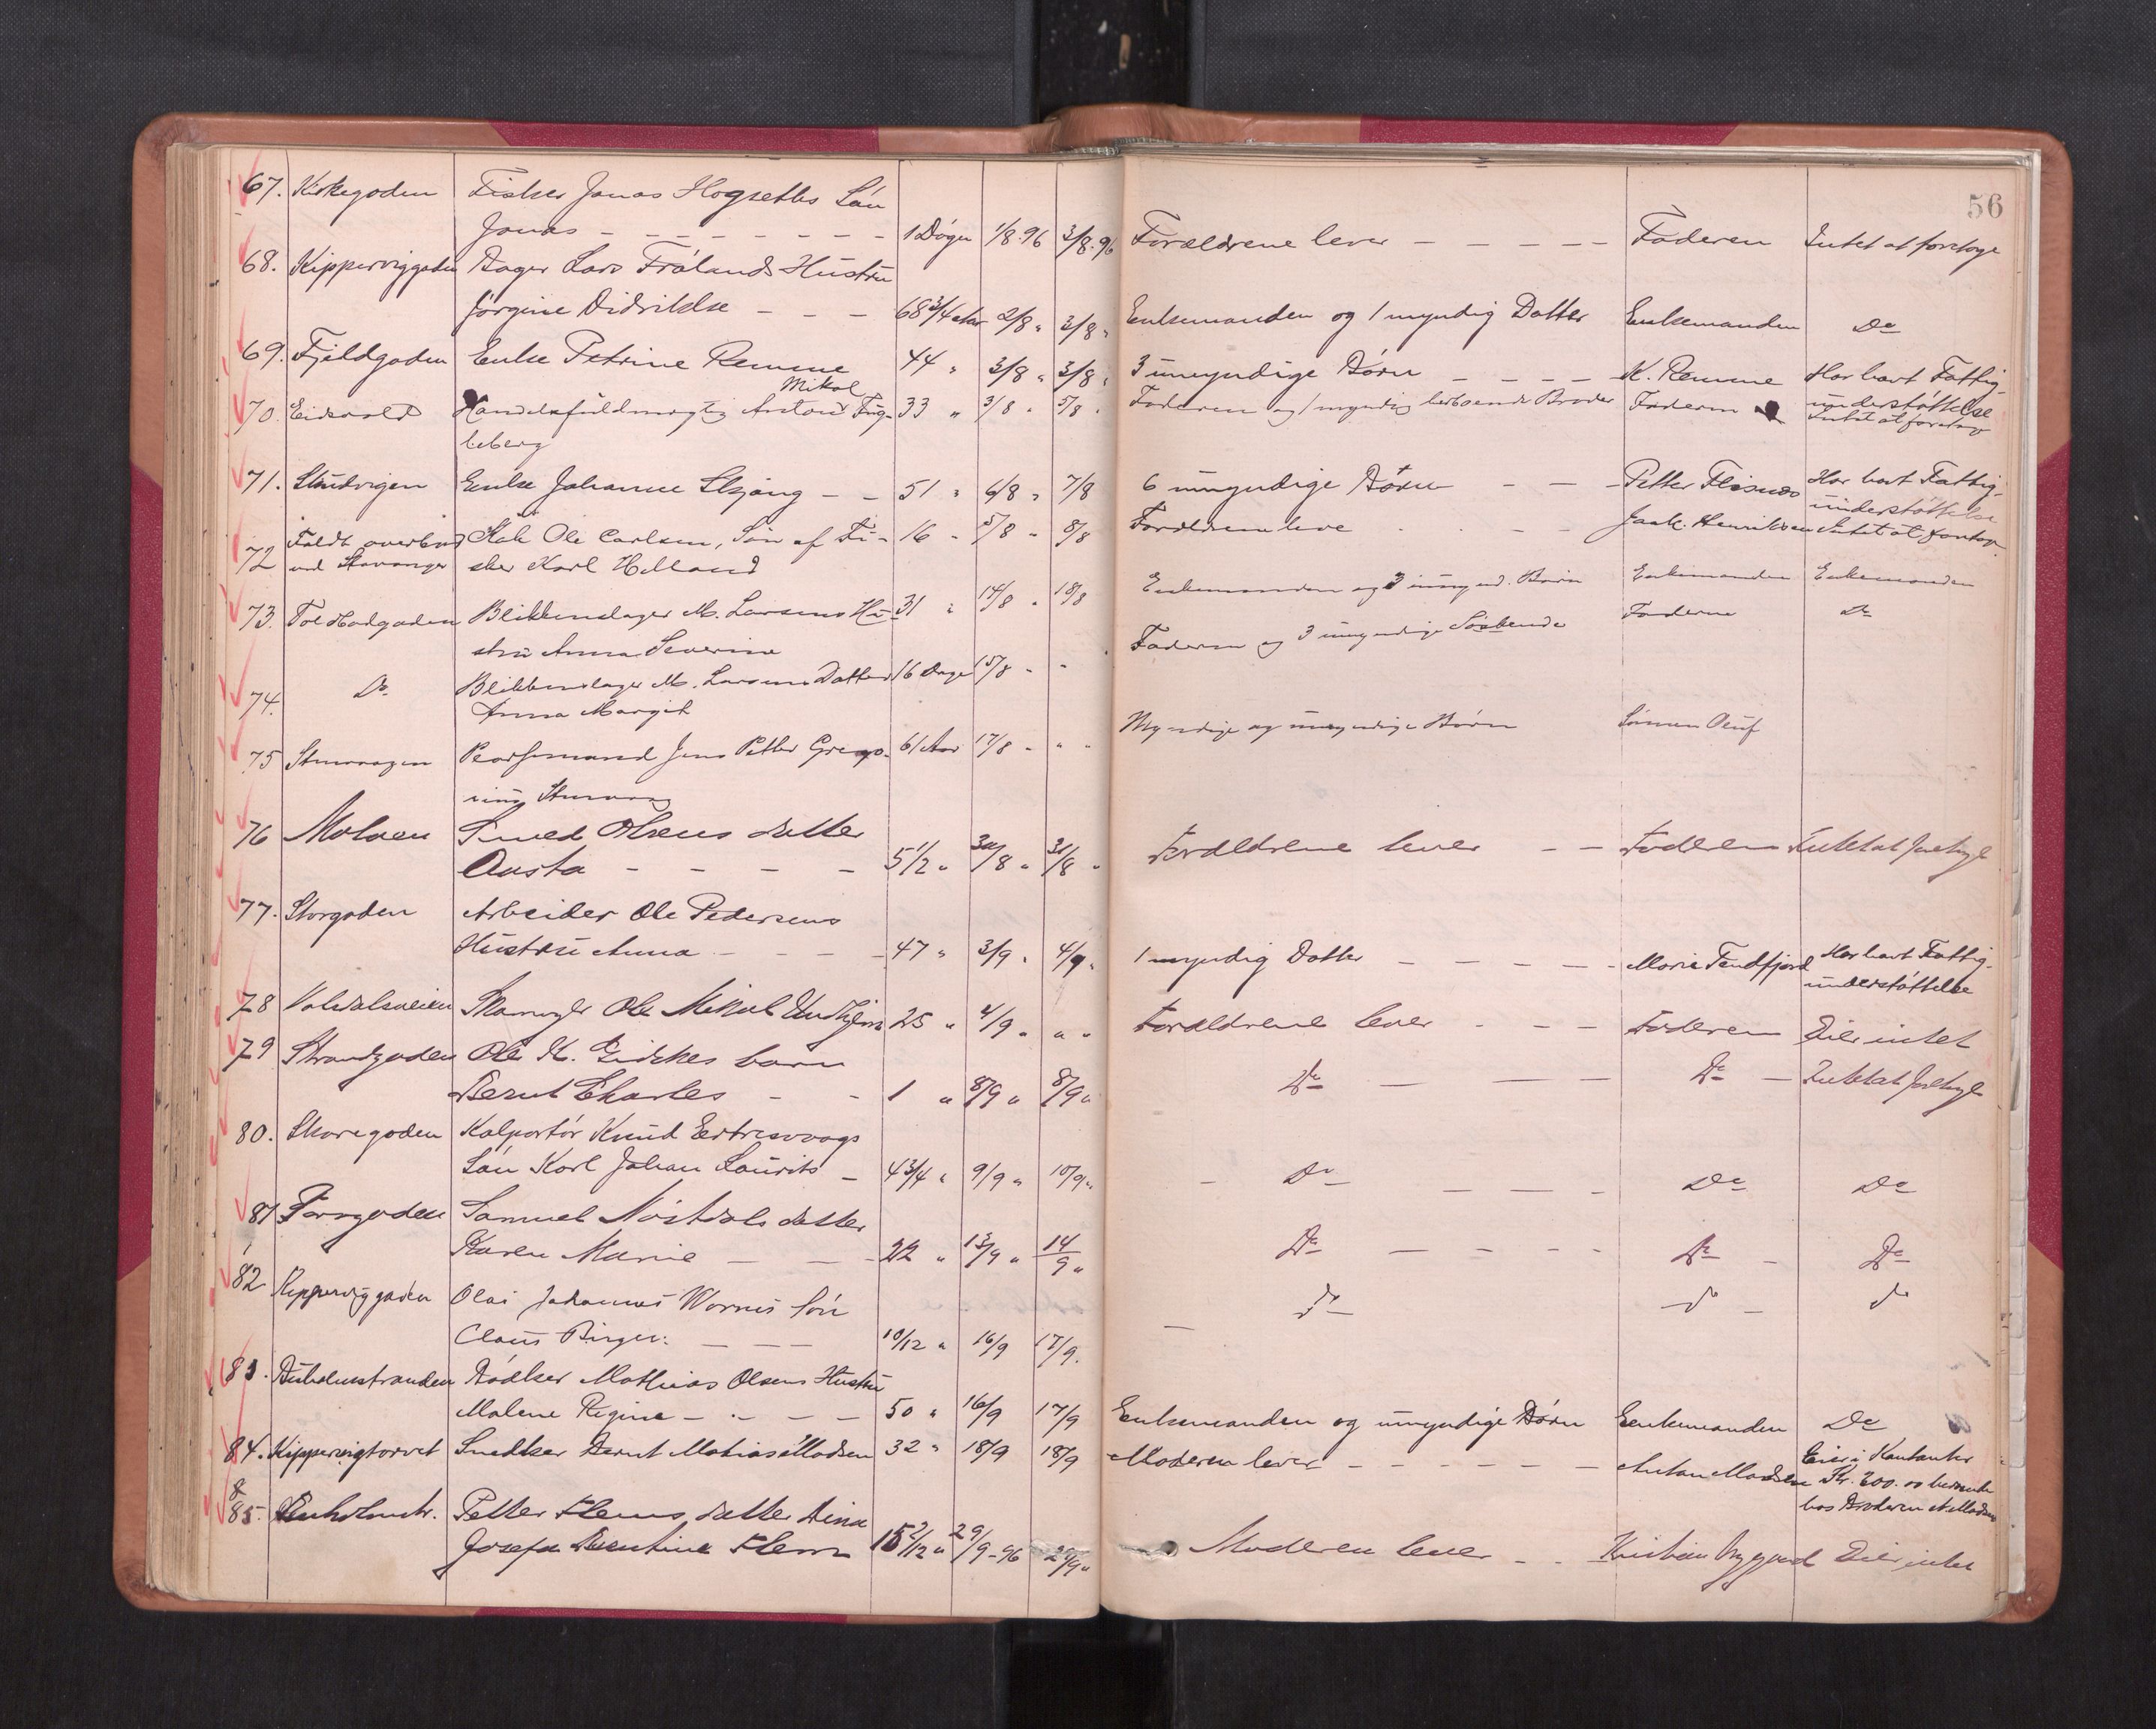 56
67. Kirkegaden Fisker Jonas Hogseths Søn
Jonas - - - - - - - - 1 Døgn 1/8.96 3/8.96 Forældrene lever - - - - - Faderen Intet at foretage
68. Kipperviggaden Bager Lars Frølands Hustru
Jørgine Didrikke - - - 68 3/4 Aar 2/8 " 3/8 " Enkemanden og 1 myndig Datter Enkemanden Do
69. Fjeldgaden Enke Petrine Remme 44 " 3/8 " 3/8 " 3 umyndige Børn - - - - K. Remme Har havt Fattig-
understøttelse
Mikal
70. Eidsvold Handelsfuldmægtig Anton Fug- 33 " 3/8 " 5/8 " Faderen og 1 myndig Broder Faderen Intet at foretage
leberg
71. Skudvigen Enke Johanne Skjong - - 51 " 6/8 " 7/8 6 umyndige Børn - - - Petter Flisnæs Har havt Fattig-
understøttelse
72 Faldt overbord Kok Ole Carlsen, Søn af Fi- 16 " 5/8 " 8/8 Forældrene leve - - - Jaak. Henriksen Intet at foretage
ved Stavanger sker Karl Helland
73. Toldbodgaden Blikkenslager M. Larsens Hu- 31 " 14/8 " 18/8 Enkemanden og 3 umynd. Børn Enkemanden Enkemanden
stru Anna Severine
74. Do. Blikkenslager M. Larsens Datter 16 Dage 15/8 " " Faderen og 3 umyndige Søskende Faderen Do
Anna Margit
75 Jens Petter Grego- 61 Aar 17/8 " " " Myndige og umyndige Børn Sønnen
rius
76 Molvær Smed Olsens datter
Aasta - - - - 5 1/2 " 30/8 " 31/8 " Forældrene lever - - Faderen Intet at foretage
77. Storgaden Arbeider Ole Pedersens
Hustru Anna - - - - 47 " 3/9 " 4/9 " 1 myndig Datter - - - - - Marie Tendfjord Har havt Fattig-
understøttelse
78 Voldsdalsveien Skomager Ole Mikal Undhjem 25 " 4/9 " " " Forældrene lever - - - Faderen Eier intet
79 Strandgaden Ole K. Giskes barn
Bernt Charles - - 1 " 8/9 " 8/9 " Do - - - Do - Intet at foretage
80. Skaregaden Kolportør Knud Eertresvaags
Søn Karl Johan Laurits - 4 3/4 " 9/9 " 10/9 " - Do - - - Do Do
81 Parrgaden Samuel Nøstdals datter
Karen Marie - - - 22 " 13/9 " 14/9 " Do - - - - Do - Do
82 Kipperviggaden Olai Johannes Worrens søn
Claus Birger. - - - 10/12 " 16/9 17/9. - do do - do
83. Buholmstranden Bødker Mathias Olsens Hustru
Malene Regine - - - - 50 " 16/9 17/9 Enkemanden og umyndige Børn Enkemanden Do
84. Kippervigtorvet Snedker Bernt Mathias Madsen 32 " 18/9 18/9 Moderen lever - - - - - - Anton Madsen Eier i Kontanter
Kr. 200.
hos Broderen A. Madsen
85. Buholmstr. Petter Flems datter Dina
Josefa Bentine Flem 15 2/12 " 29/9-96 29/9 " Moderen lever - - Kristian Myggard Eier intet